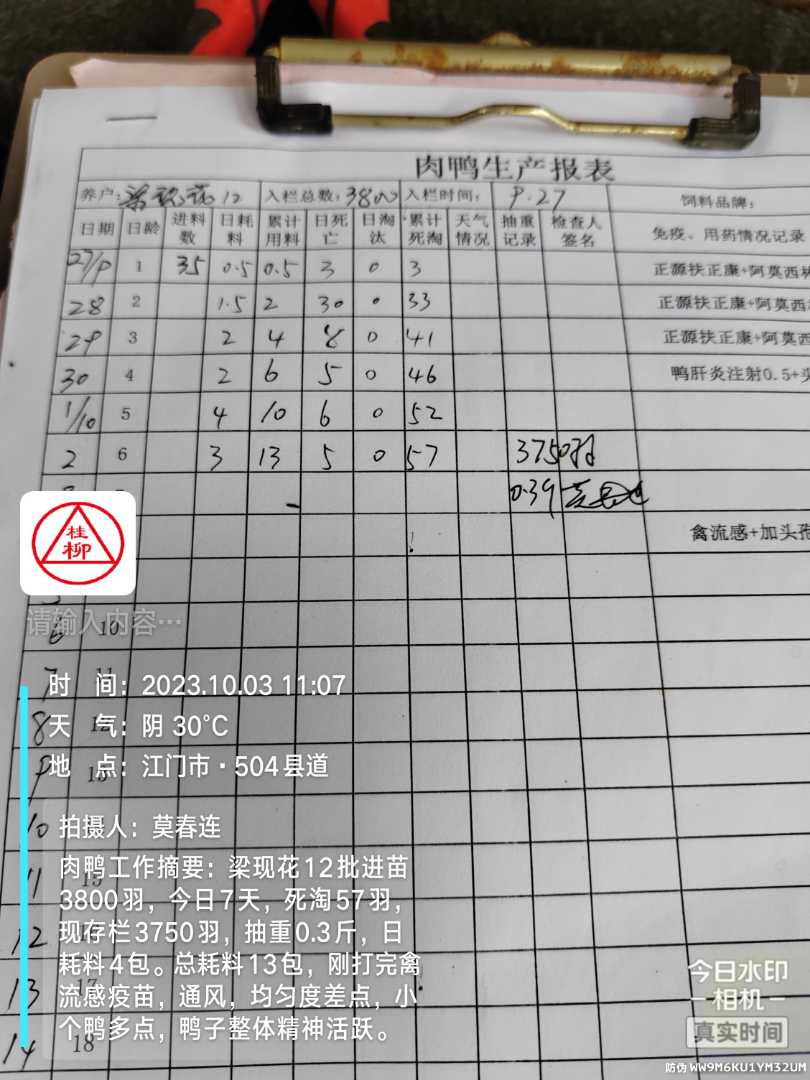 肉鸭生产报表
养户: 12 入栏总数: 3800 入栏时间: 9.27 饲料品牌:
日期 日龄 进料数 日耗料 累计用料 日死亡 日淘汰 累计死淘 天气情况 抽重记录 检查人签名 免疫、用药情况记录
27/9 1 35 0.5 0.5 3 0 3 正源扶正康+阿莫西林
28 2 1.5 2 30 0 33 正源扶正康+阿莫西
29 3 2 4 8 0 41 正源扶正康+阿莫西
30 4 2 6 5 0 46 鸭肝炎注射0.5+头
1/10 5 4 10 6 0 52
2 6 3 13 5 0 57 3750羽
0.39
禽流感+加头孢
桂柳
请输入内容…
6 10
7 11
时 间: 2023.10.03 11:07
8 12
天 气: 阴 30℃
9 13
地 点: 江门市·504县道
10
拍摄人: 莫春连
11 15
肉鸭工作摘要: 梁现花12批进苗
3800羽, 今日7天, 死淘57羽,
12
现存栏3750羽, 抽重0.3斤, 日
耗料4包。总耗料13包, 刚打完禽
13 17
流感疫苗, 通风, 均匀度差点, 小
个鸭多点, 鸭子整体精神活跃。
14 18
今日水印
相机
真实时间
防伪 WW9M6KU1YM32UM